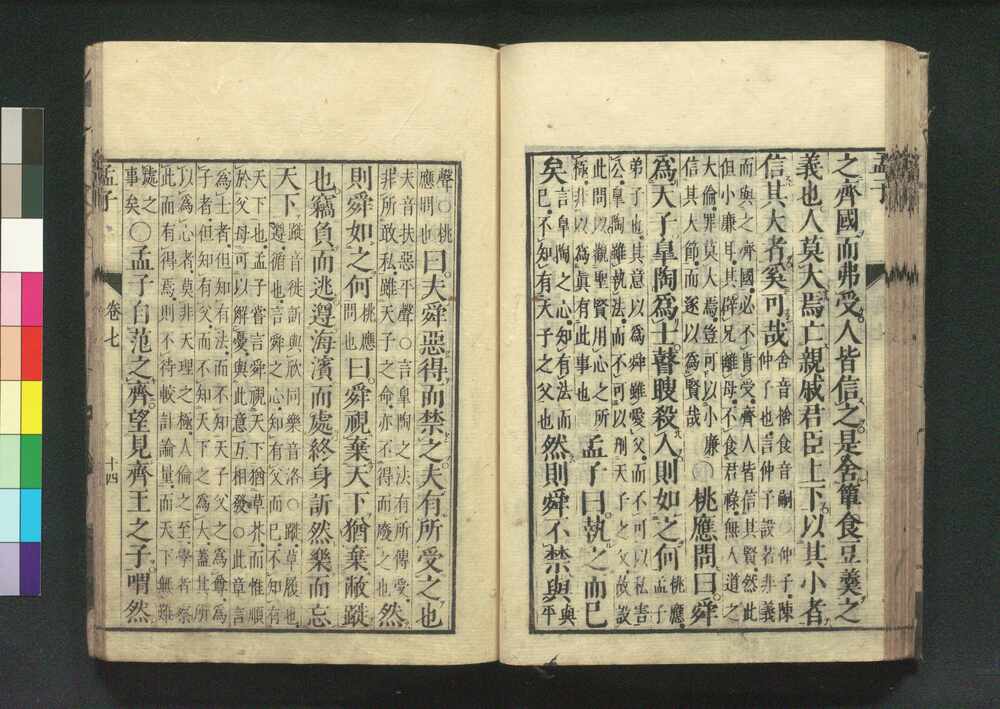 孟子
之齊國而弗受人皆信之是舍簞食豆羹之
義也人莫大焉亡親戚君臣上下以其小者
信其大者奚可哉
舍音捨食音嗣○仲子陳
仲子也言仲子設若非義
而與之齊國必不肯受齊人皆信其賢然此
但小廉耳其辟兄離母不食君祿無人道之
大倫罪莫大焉豈可以小廉
信其大節而遂以爲賢哉
○桃應問曰舜
爲天子皐陶爲士瞽瞍殺人則如之何
桃應
孟子
弟子也其意以爲舜雖愛父而不可以私害
公皐陶雖執法而不可以刑天子之父故設
此問以觀聖賢用心之所
極非以爲眞有此事也
孟子曰執之而已
矣
言皐陶之心知有法而
已不知有天子之父也
然則舜不禁與
與
平
聲○桃
應問也
曰夫舜惡得而禁之夫有所受之也
夫音扶惡平聲○言皐陶之法有所傳受
非所敢私雖天子之命亦不得而廢之也
然
則舜如之何
桃應
問也
曰舜視棄天下猶棄敝蹝
也竊負而逃遵海濱而處終身訢然樂而忘
天下
蹝音徙訢與欣同樂音洛○蹝草履也
遵循也言舜之心知有父而已不知有
天下也孟子嘗言舜視天下猶草芥而惟順
於父母可以解憂與此意互相發○此章言
爲士者但知有法而不知天子父之爲尊爲
子者但知有父而不知天下之爲大蓋其所
以爲心者莫非天理之極人倫之至學者察
此而有得焉則不待較計論量而天下無難
處之
事矣
○孟子自范之齊望見齊王之子喟然
孟子
卷七
十四